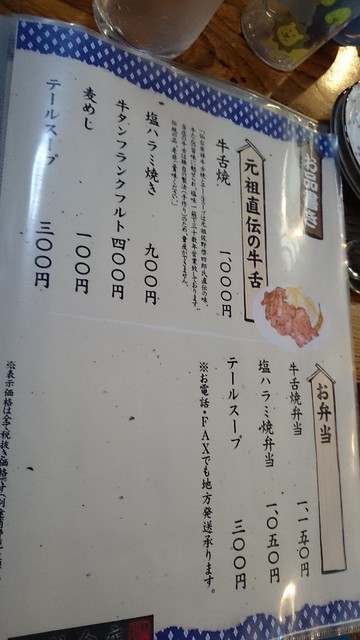 お品書き
元祖直伝の牛舌
牛舌焼 一、〇〇〇円
塩ハラミ焼き 九〇〇円
牛タンフランクフルト 四〇〇円
麦めし 一〇〇円
テールスープ 三〇〇円
お弁当
牛舌焼弁当 一、一五〇円
塩ハラミ焼弁当 一、〇五〇円
テールスープ 三〇〇円
※お電話・FAXでも地方発送承ります。
※表示価格は全て税抜き価格です